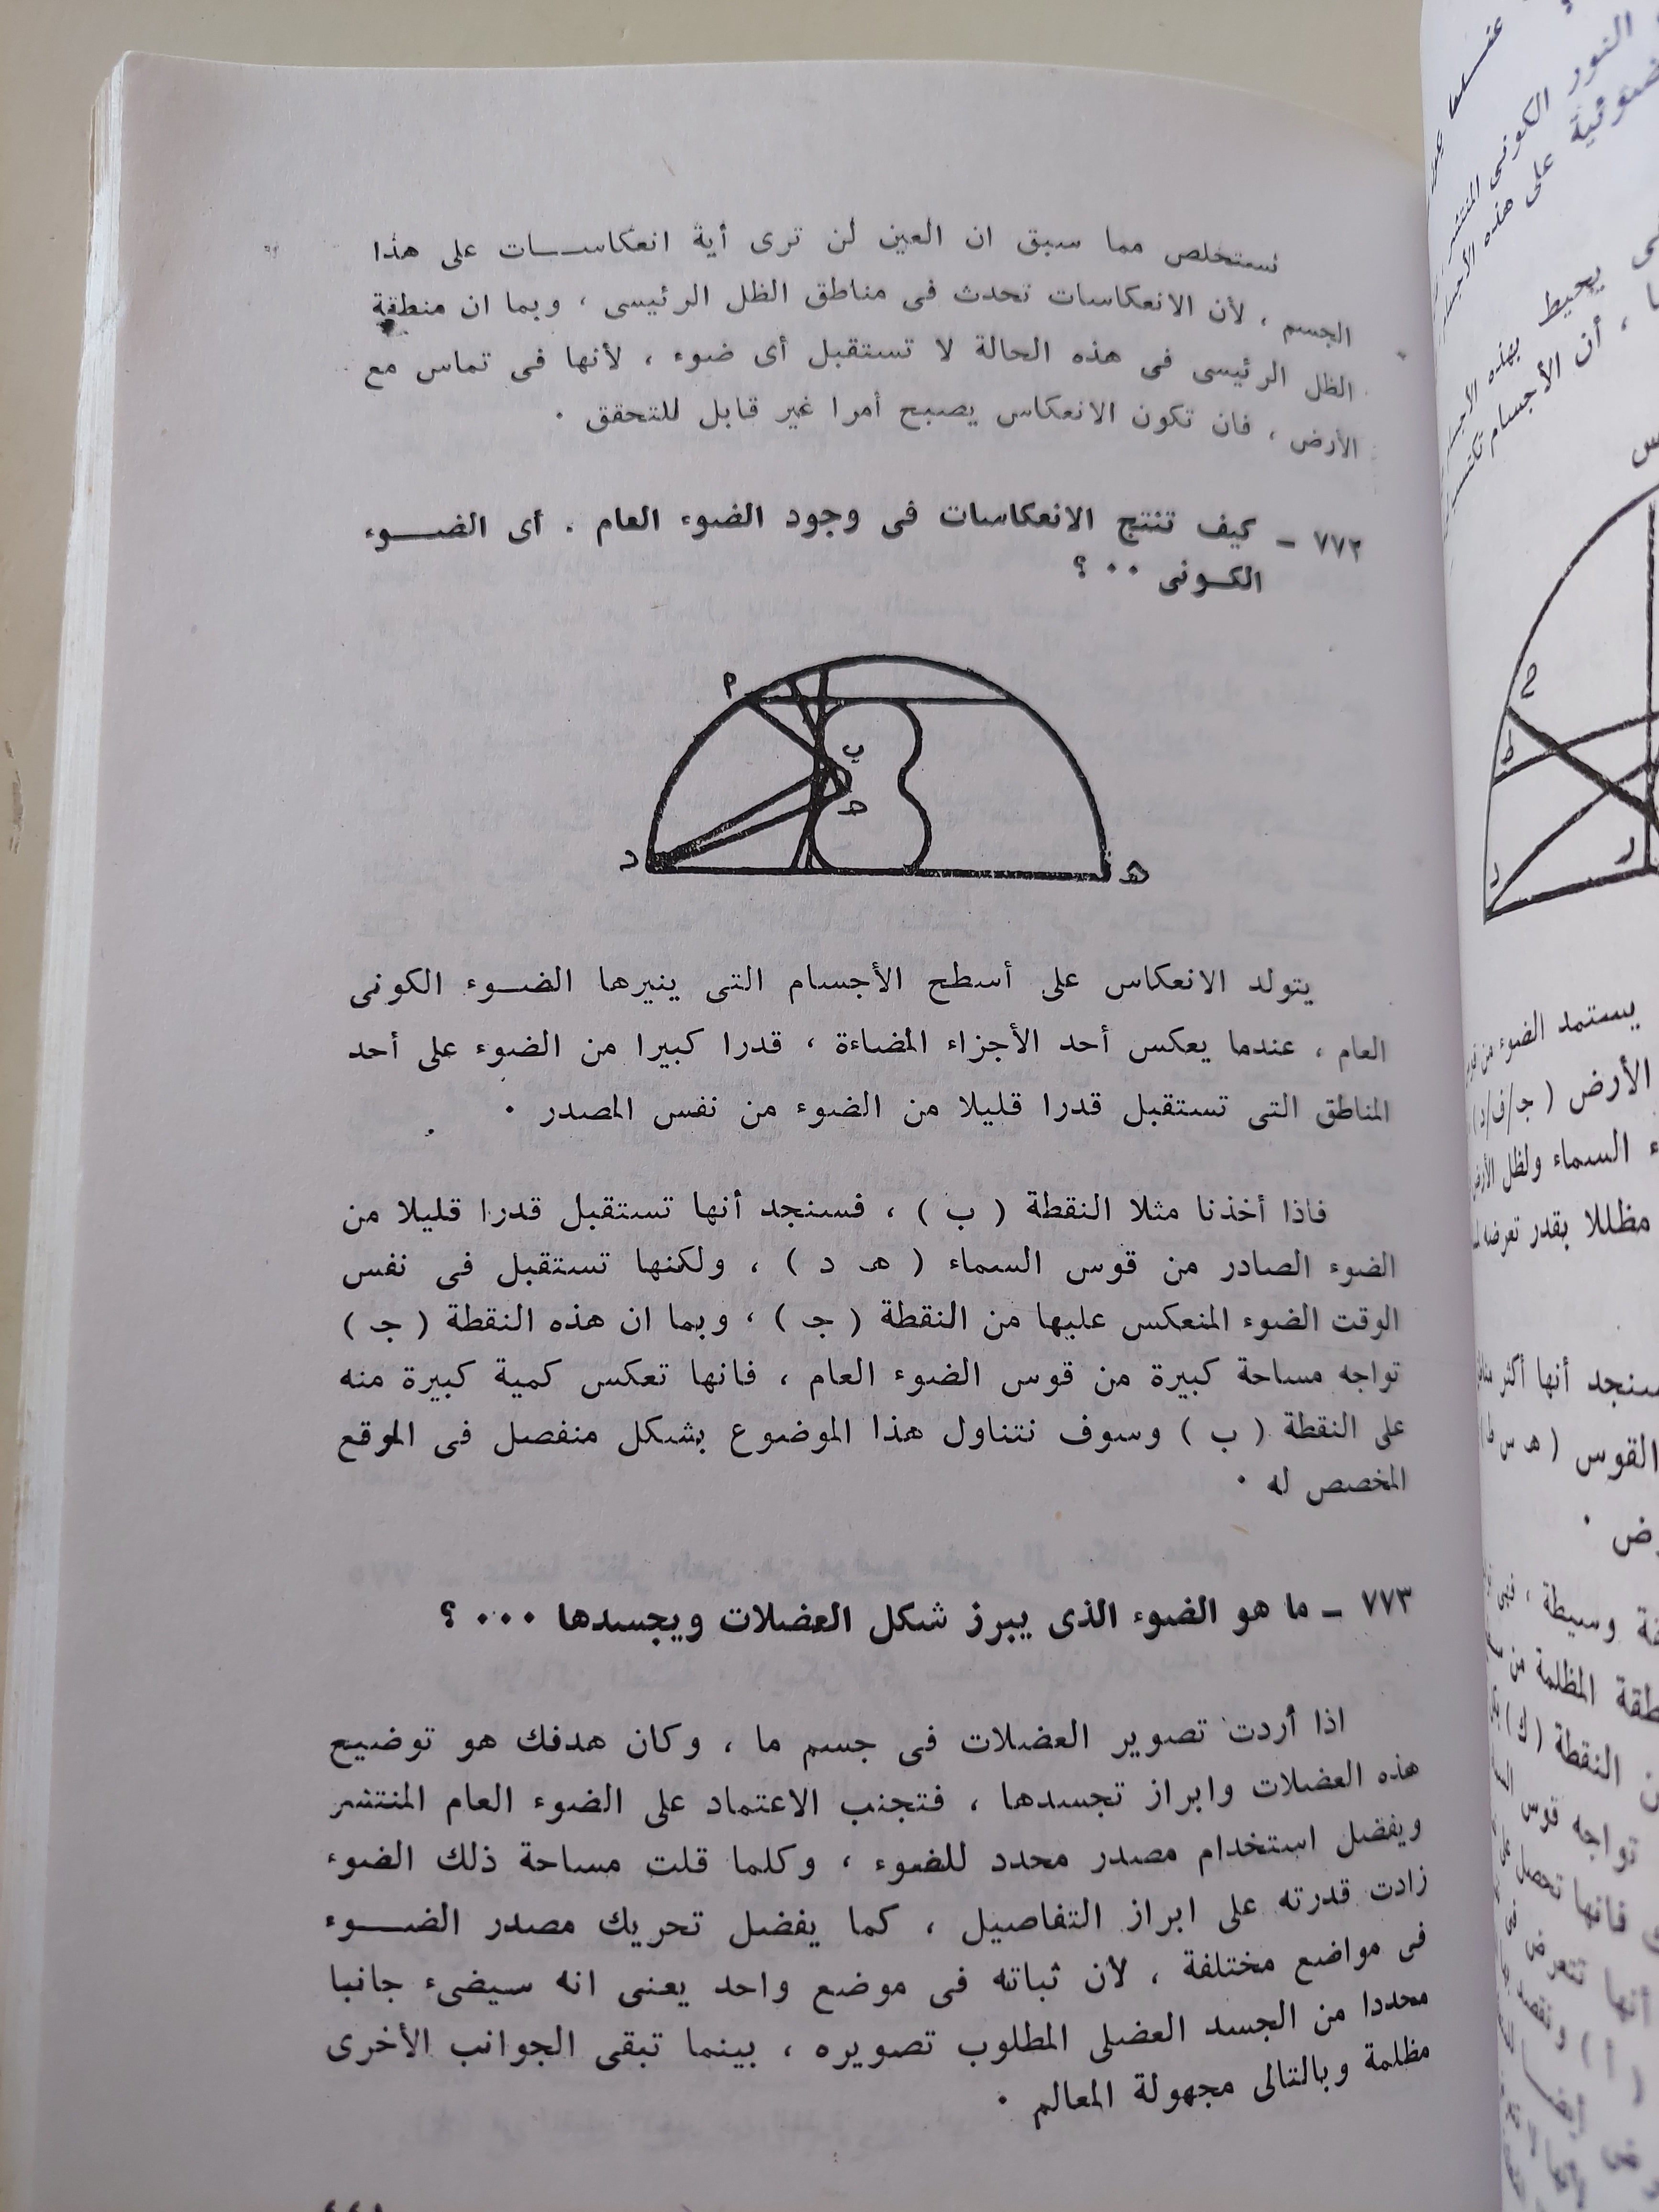 نستخلص مما سبق ان العين لن ترى أية انعكاسات على هذا
الجسم ، لأن الانعكاسات تحدث فى مناطق الظل الرئيسى ، وبما ان منطقة
الظل الرئيسى فى هذه الحالة لا تستقبل أى ضوء ، لأنها فى تماس مع
الأرض ، فان تكون الانعكاس يصبح أمرا غير قابل للتحقق ٠
٧٧٢ ــ كيف تنتج الانعكاسات فى وجود الضوء العام . أى الضوء
الكونى ٠٠ ؟
م
ب
حـ
د
هـ
يتولد الانعكاس على أسطح الأجسام التى ينيرها الضوء الكونى
العام ، عندما يعكس أحد الأجزاء المضاءة ، قدرا كبيرا من الضوء على أحد
المناطق التى تستقبل قدرا قليلا من الضوء من نفس المصدر ٠
فاذا أخذنا مثلا النقطة ( ب ) ، فسنجد أنها تستقبل قدرا قليلا من
الضوء الصادر من قوس السماء ( هـ د ) ، ولكنها تستقبل فى نفس
الوقت الضوء المنعكس عليها من النقطة ( جـ ) ، وبما ان هذه النقطة ( جـ )
تواجه مساحة كبيرة من قوس الضوء العام ، فانها تعكس كمية كبيرة منه
على النقطة ( ب ) وسوف نتناول هذا الموضوع بشكل منفصل فى الموقع
المخصص له ٠
٧٧٣ ــ ما هو الضوء الذى يبرز شكل العضلات ويجسدها ٠٠٠ ؟
اذا أردت تصوير العضلات فى جسم ما ، وكان هدفك هو توضيح
هذه العضلات وابراز تجسدها ، فتجنب الاعتماد على الضوء العام المنتشر
ويفضل استخدام مصدر محدد للضوء ، وكلما قلت مساحة ذلك الضوء
زادت قدرته على ابراز التفاصيل ، كما يفضل تحريك مصدر الضوء
فى مواضع مختلفة ، لأن ثباته فى موضع واحد يعنى انه سيضىء جانبا
محددا من الجسد العضلى المطلوب تصويره ، بينما تبقى الجوانب الأخرى
مظلمة وبالتالى مجهولة المعالم ٠
النور الكونى
على هذه
يحيط بهذه
، أن الأجسام
يستمد الضوء من
الأرض ( جـ/ف/د )
السماء ولظل
مظللا بقدر
أنها أكثر
القوس ( هـ س ط )
وسيطة ،
المظلمة من
النقطة ( ك )
تواجه قوس
فانها تحصل
أنها